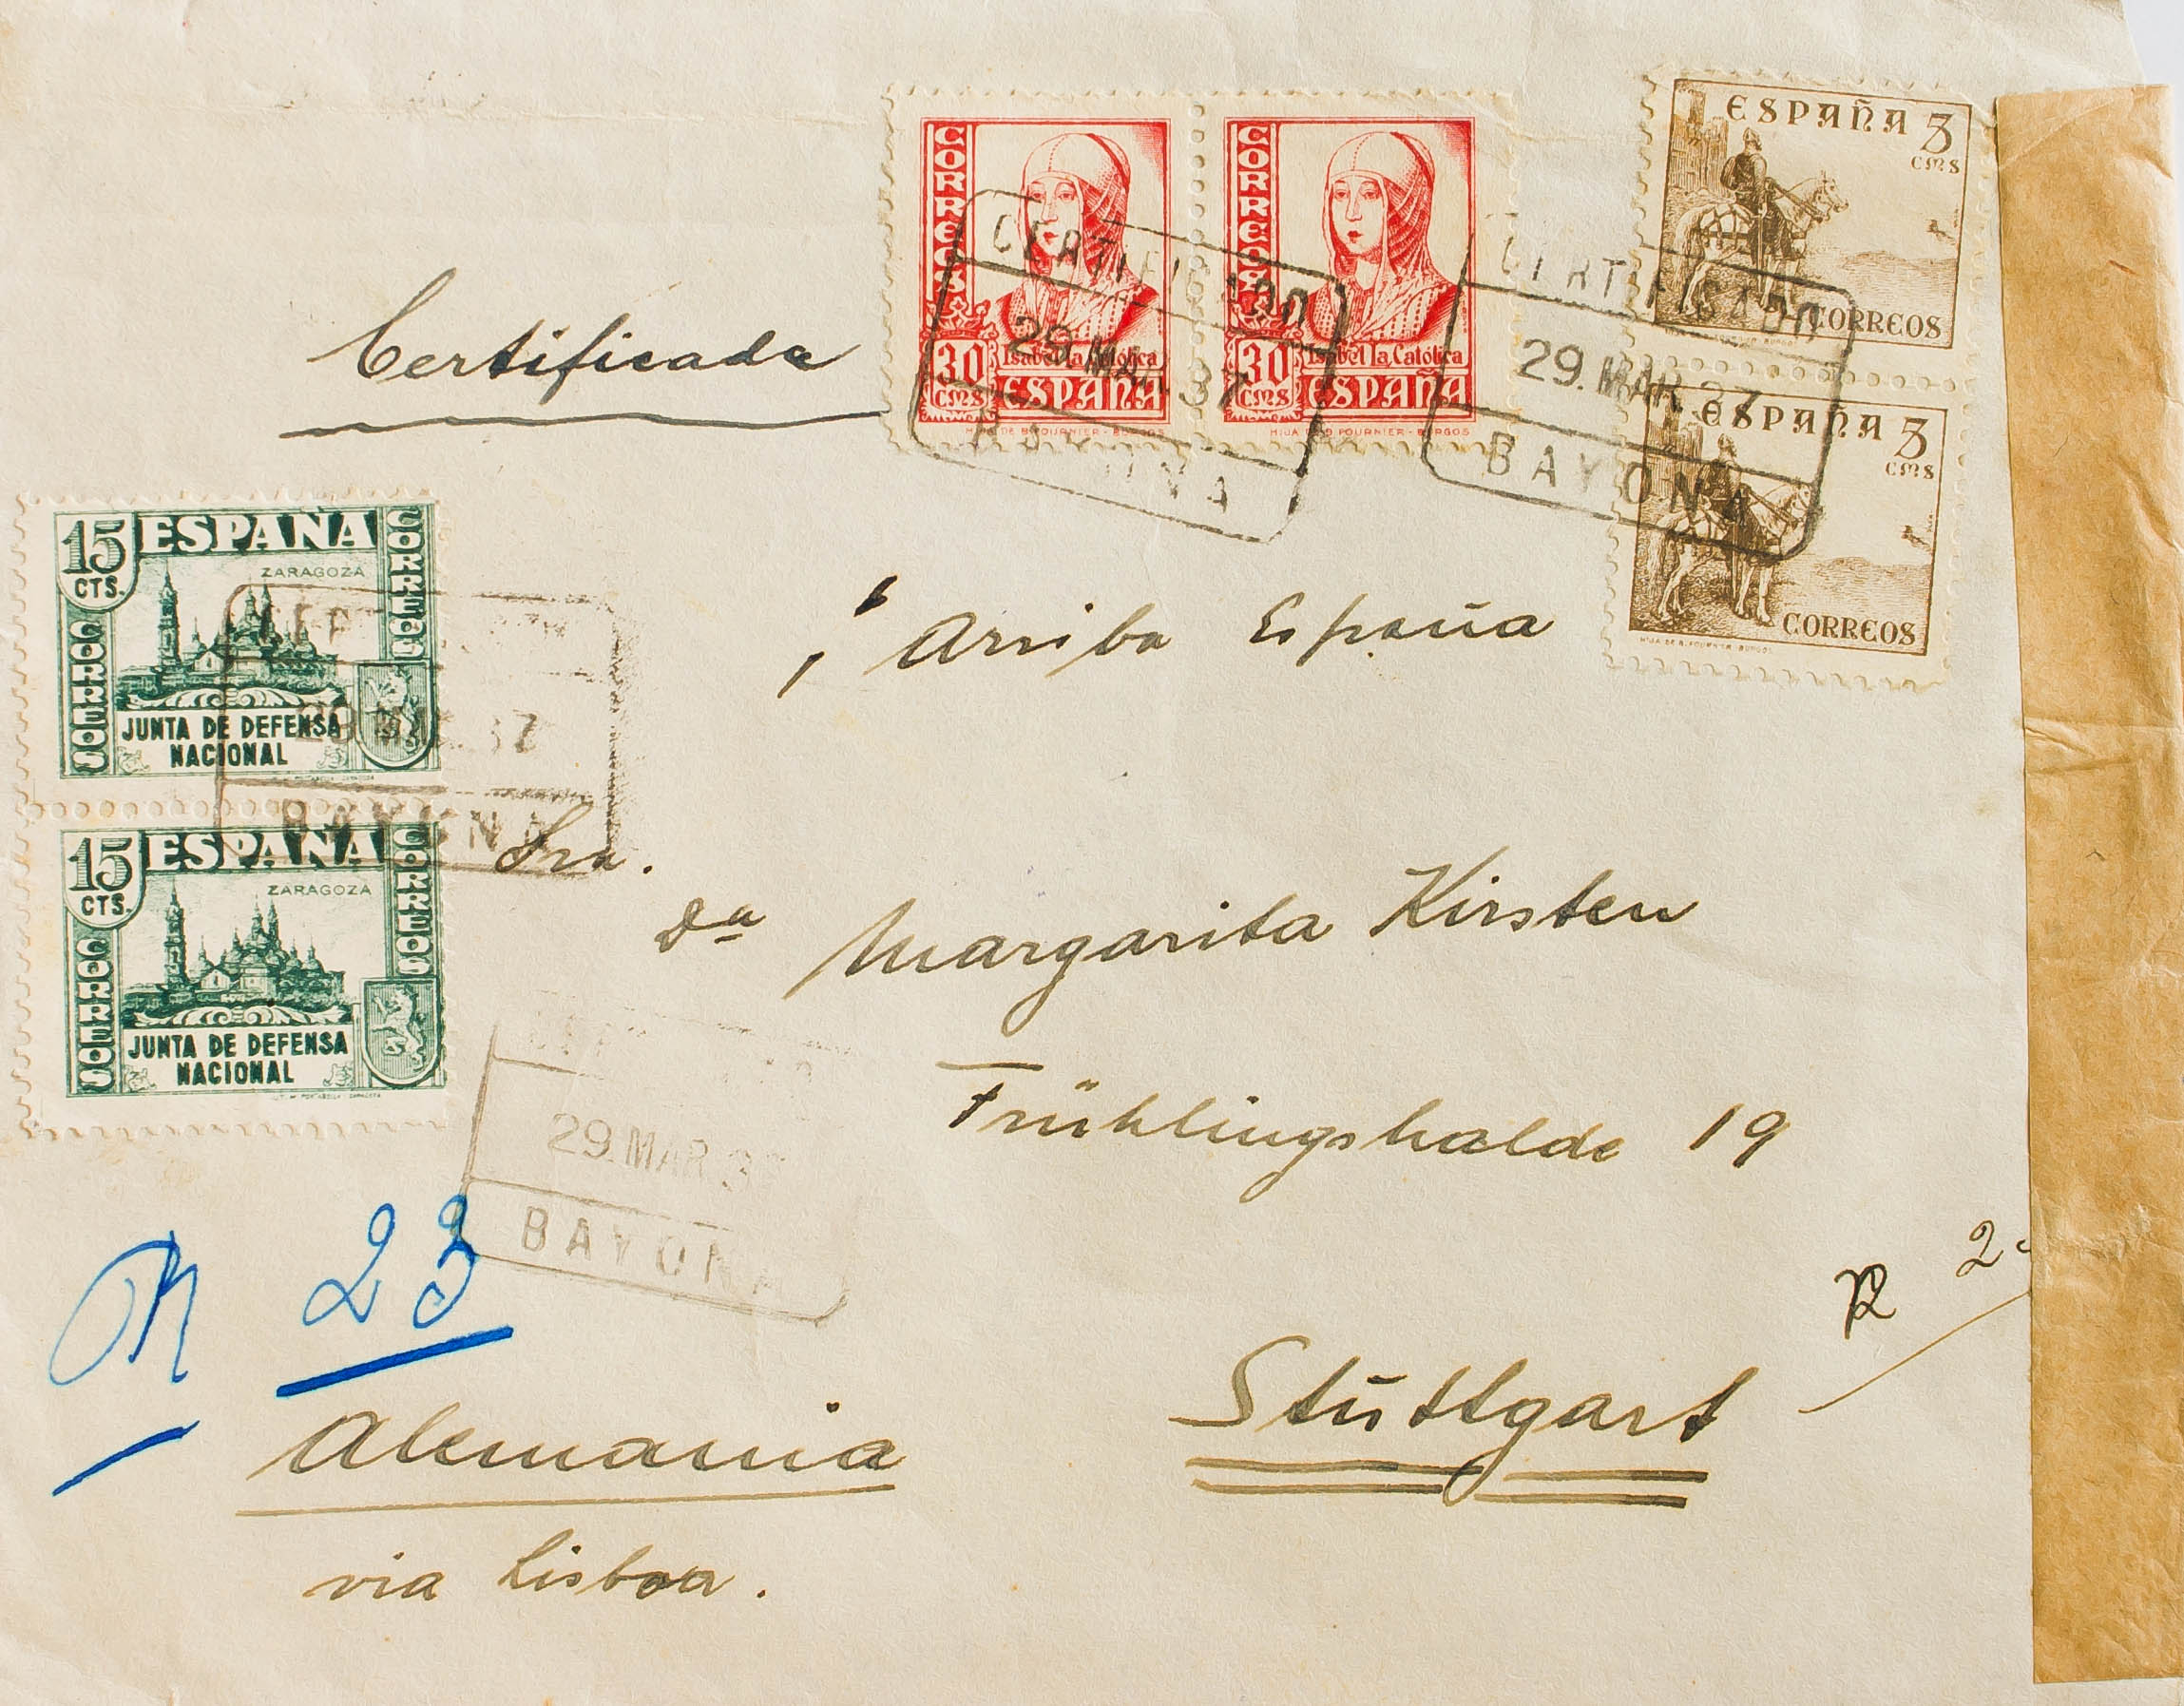 CORREOS
30 CMS
Isabel la Católica
ESPAÑA
HIJA DE B. FOURNIER - BURGOS
CORREOS
30 CMS
Isabel la Católica
ESPAÑA
HIJA DE B. FOURNIER - BURGOS
ESPAÑA 5 CMS
CORREOS
ESPAÑA 5 CMS
CORREOS
HIJA DE B. FOURNIER - BURGOS
CERTIFICADO
29 MAR 37
BAYONA
CERTIFICADO
29. MAR 37
BAYONA
Certificada
¡Arriba España
15 CTS.
ESPAÑA
CORREOS
ZARAGOZA
CORREOS
JUNTA DE DEFENSA
NACIONAL
29 MAR 37
BAYONA
15 CTS.
ESPAÑA
CORREOS
ZARAGOZA
CORREOS
JUNTA DE DEFENSA
NACIONAL
Sra.
Dª Margarita Kirsten
Frühlingshalde 19
29. MAR 3
BAYONA
R 23
R 2
Stūttgart
Alemania
via Lisboa.